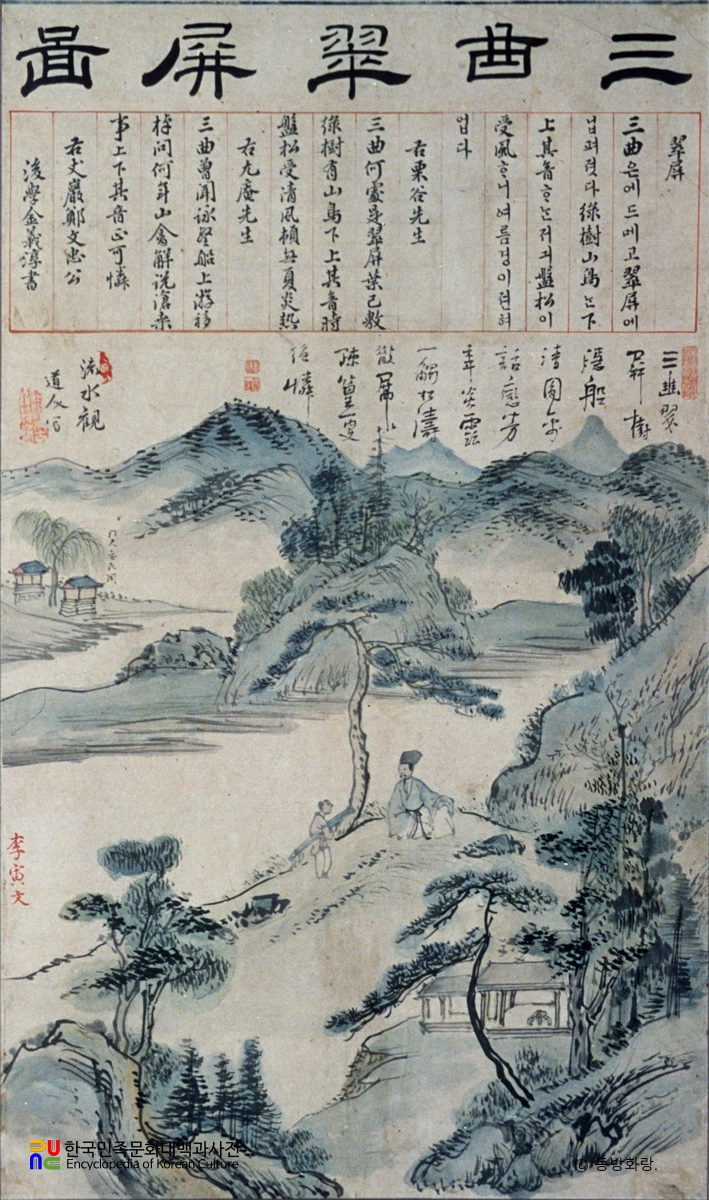 三曲翠屛圖
翠屛
三曲은어드메고翠屛에
닙퍼졋다綠樹山鳥ᄂᆞᆫ下
上其音ᄒᆞᄂᆞᆫ져긔盤松이
受風ᄒᆞ니여름경이련혀
업다
右栗谷先生
三曲何處是翠屛葉已敷
綠樹有山鳥下上其音時
盤松受清風頓無夏炎熱
右尤庵先生
三曲曾聞詠壑船上游移
棹問何年山禽解說滄桑
事上下其音正可憐
右丈巖鄭文忠公
後學金羲淳書
三曲翠
屛樹
隱船
話戀芳
一觴松濤
流水觀
道人寫
李寅文
한국민족문화대백과사전
Encyclopedia of Korean Culture
ⓒ동방화랑.